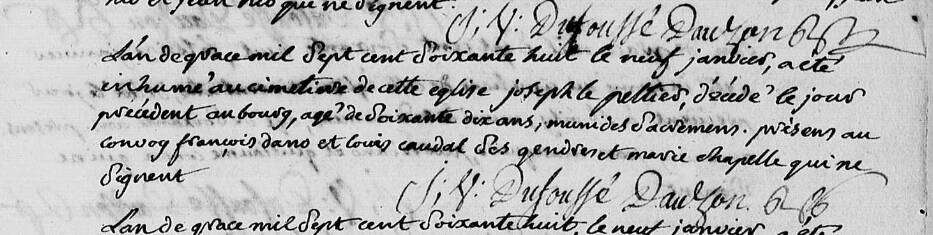 et jean que ne signent.
J: V: Dufoussé Dauzon
L'an de grace mil sept cent soixante huit le neuf janvier, a eté
inhumé au cimetiere de cette eglise joseph le peltier, décédé le jour
précédent au bourg, agé de soixante dix ans, muni des sacremens. présens au
convoy françois dano et louis caudal ses gendres et marie chapelle qui ne
signent
J: V: Dufoussé Dauzon.
L'an de grace mil sept cent soixante huit, le neuf janvier, a été